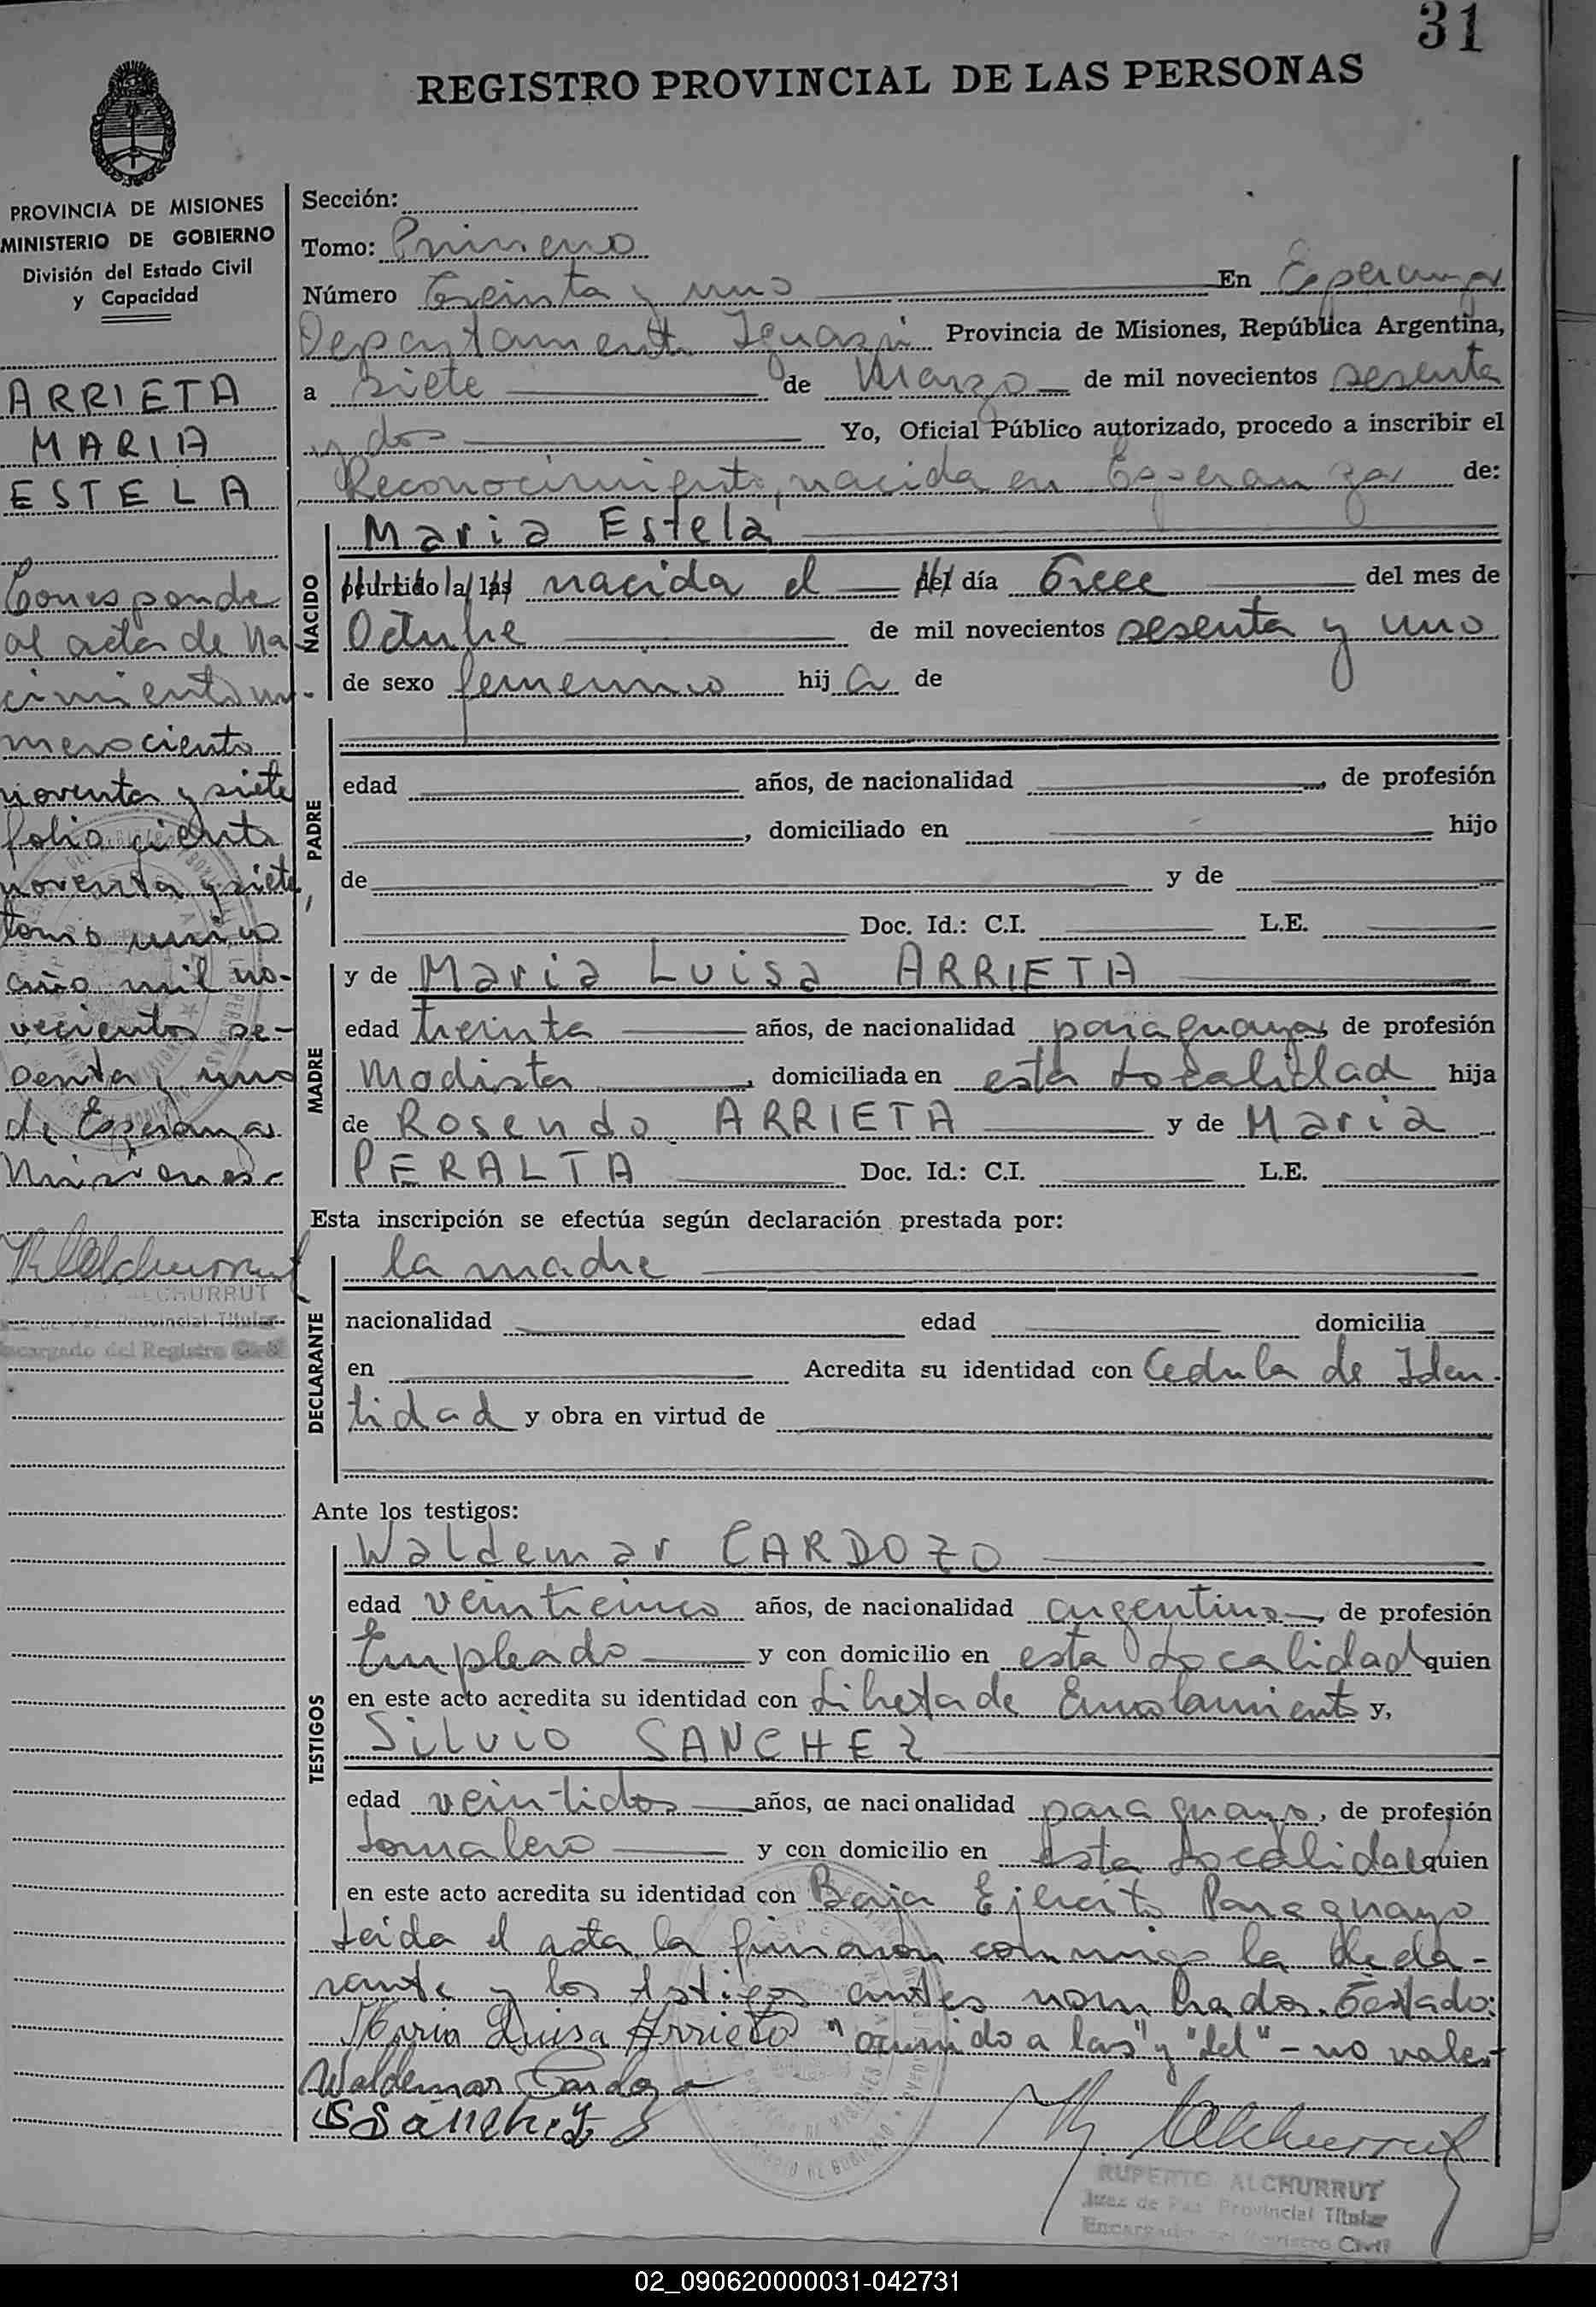 31
REGISTRO PROVINCIAL DE LAS PERSONAS
PROVINCIA DE MISIONES
MINISTERIO DE GOBIERNO
División del Estado Civil
y Capacidad
ARRIETA
MARIA
ESTELA
Corresponde
al acta de Na
cimiento nu-
mero ciento
noventa y siete
folio ciento
noventa y siete
tomo unico
año mil no-
vecientos se-
senta y uno
de Esperanza
Misiones.-
ALCHURRUT
Juez de Paz Provincial Titular
Encargado del Registro Civil
Sección:
Tomo: Primero
Número Treinta y uno En Esperanza
Departamento Iguazú Provincia de Misiones, República Argentina,
a siete de Marzo de mil novecientos sesenta
y dos Yo, Oficial Público autorizado, procedo a inscribir el
Reconocimiento, nacida en Esperanza de:
NACIDO
Maria Estela
ocurrido a las nacida el del día Trece del mes de
Octubre de mil novecientos sesenta y uno
de sexo femenino hij a de
PADRE
edad años, de nacionalidad , de profesión
, domiciliado en hijo
de y de
Doc. Id.: C.I. L.E.
MADRE
y de Maria Luisa ARRIETA
edad treinta años, de nacionalidad paraguaya, de profesión
Modista , domiciliada en esta Localidad hija
de Rosendo ARRIETA y de Maria
PERALTA Doc. Id.: C.I. L.E.
Esta inscripción se efectúa según declaración prestada por:
DECLARANTE
la madre
nacionalidad edad domicilia
en Acredita su identidad con Cedula de Iden-
tidad y obra en virtud de
Ante los testigos:
TESTIGOS
Waldemar CARDOZO
edad veinticinco años, de nacionalidad argentino, de profesión
Empleado y con domicilio en esta Localidad quien
en este acto acredita su identidad con Libreta de Enrolamiento y,
Silvio SANCHEZ
edad veintidos años, de nacionalidad paraguayo, de profesión
Jornalero y con domicilio en esta Localidad quien
en este acto acredita su identidad con Baja Ejercito Paraguayo
Leida el acta la firmaron conmigo la decla-
rante y los testigos antes nombrados. Testado:
Maria Luisa Arrieta "ocurrido a las" y "del" - no vale.
Waldemar Cardozo
S Sanchez
RUPERTO ALCHURRUT
Juez de Paz Provincial Titular
Encargado del Registro Civil
02_090620000031-042731